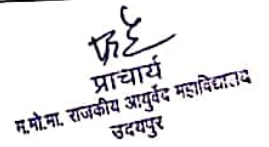 प्राचार्य
म.मो.मा. राजकीय आयुर्वेद महाविद्यालय
उदयपुर